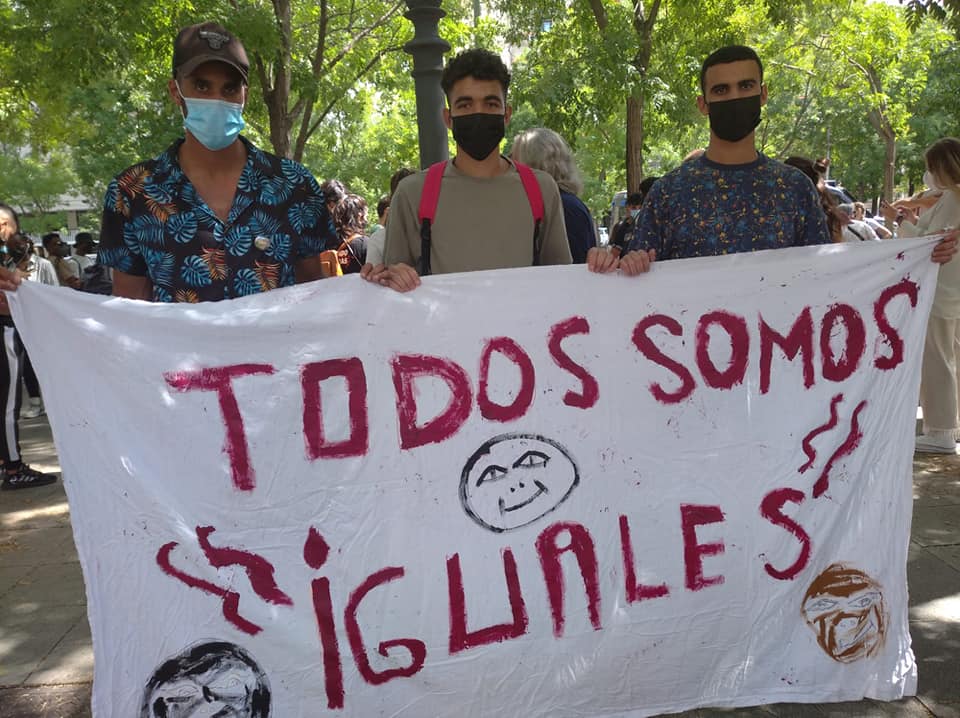 TODOS SOMOS
iGUALES